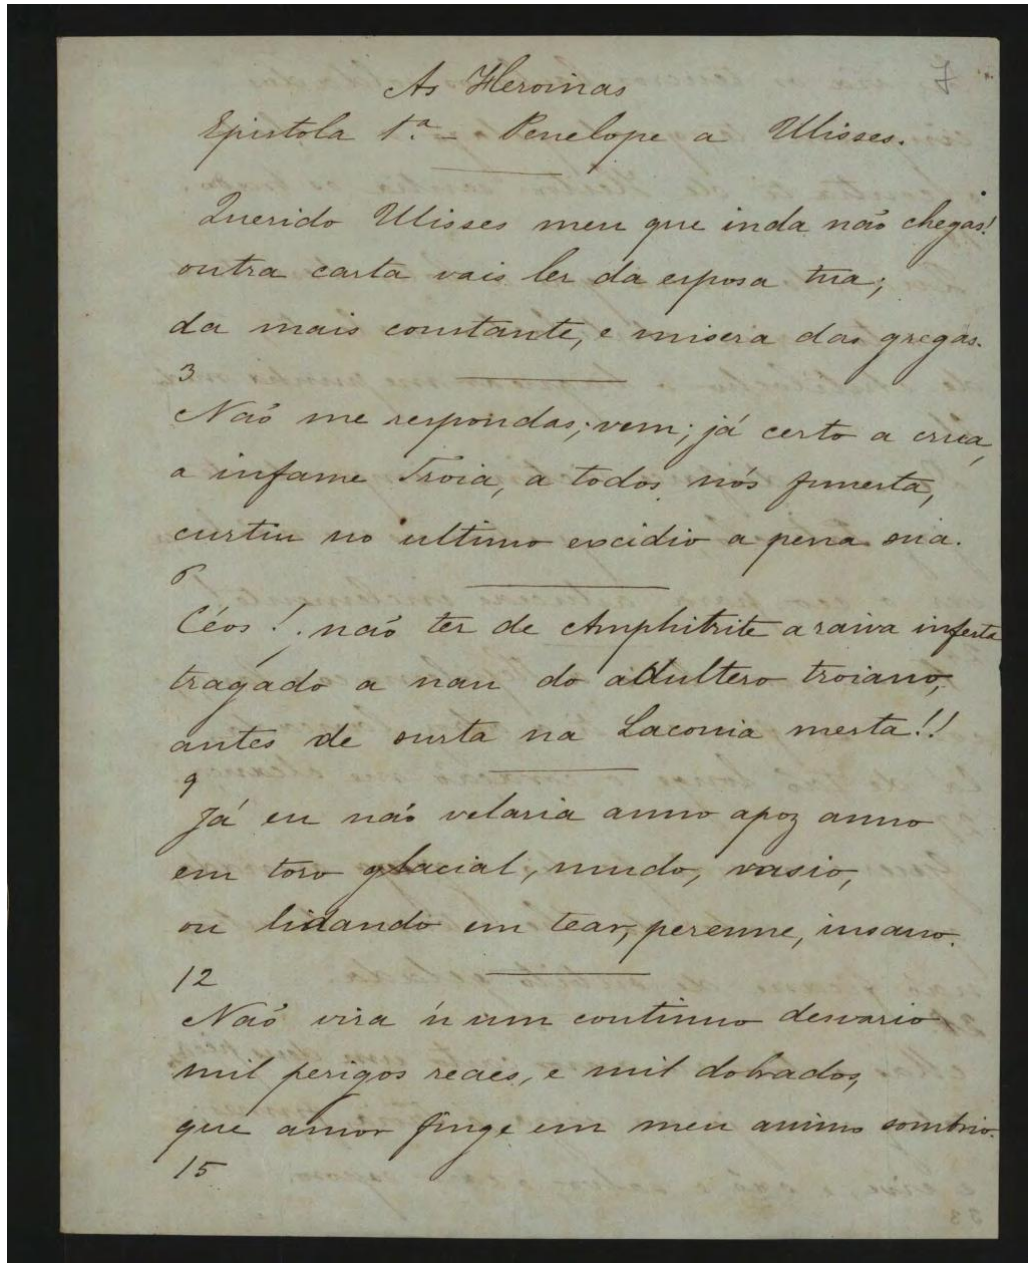 As Heroinas
Epistola 1.ª - Penelope a Ulisses.
Querido Ulisses meu que inda não chegas!
outra carta vais ler da esposa tua;
da mais constante, e misera das gregas.
3
Não me respondas; vem; já certo a crua,
a infame Troia, a todos nós funesta,
curtiu no ultimo excidio a pena sua.
6
Céos! não ter de Amphitrite a raiva infesta
tragado a nau do adultero troiano,
antes de surta na Laconia mesta!!
9
Já eu não velaria anno apoz anno
em toro glacial, mudo, vasio,
ou lidando em tear, perenne, insano.
12
Não vira n'um continuo desvario
mil perigos reaes, e mil dobrados,
que amor finge em meu animo sombrio.
15